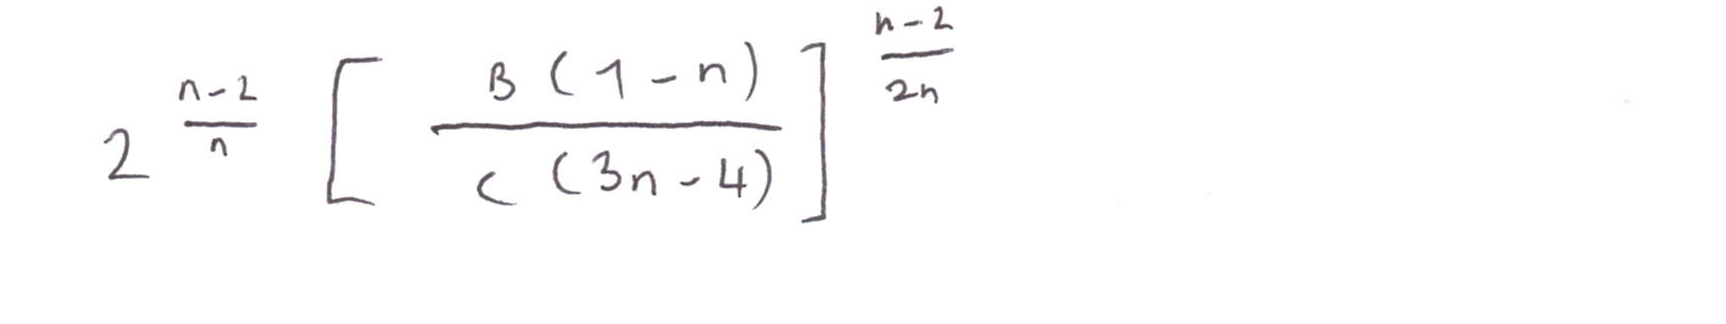 2^{\frac{n-2}{n}} \left[ \frac{B(1-n)}{C(3n-4)} \right]^{\frac{n-2}{2n}}